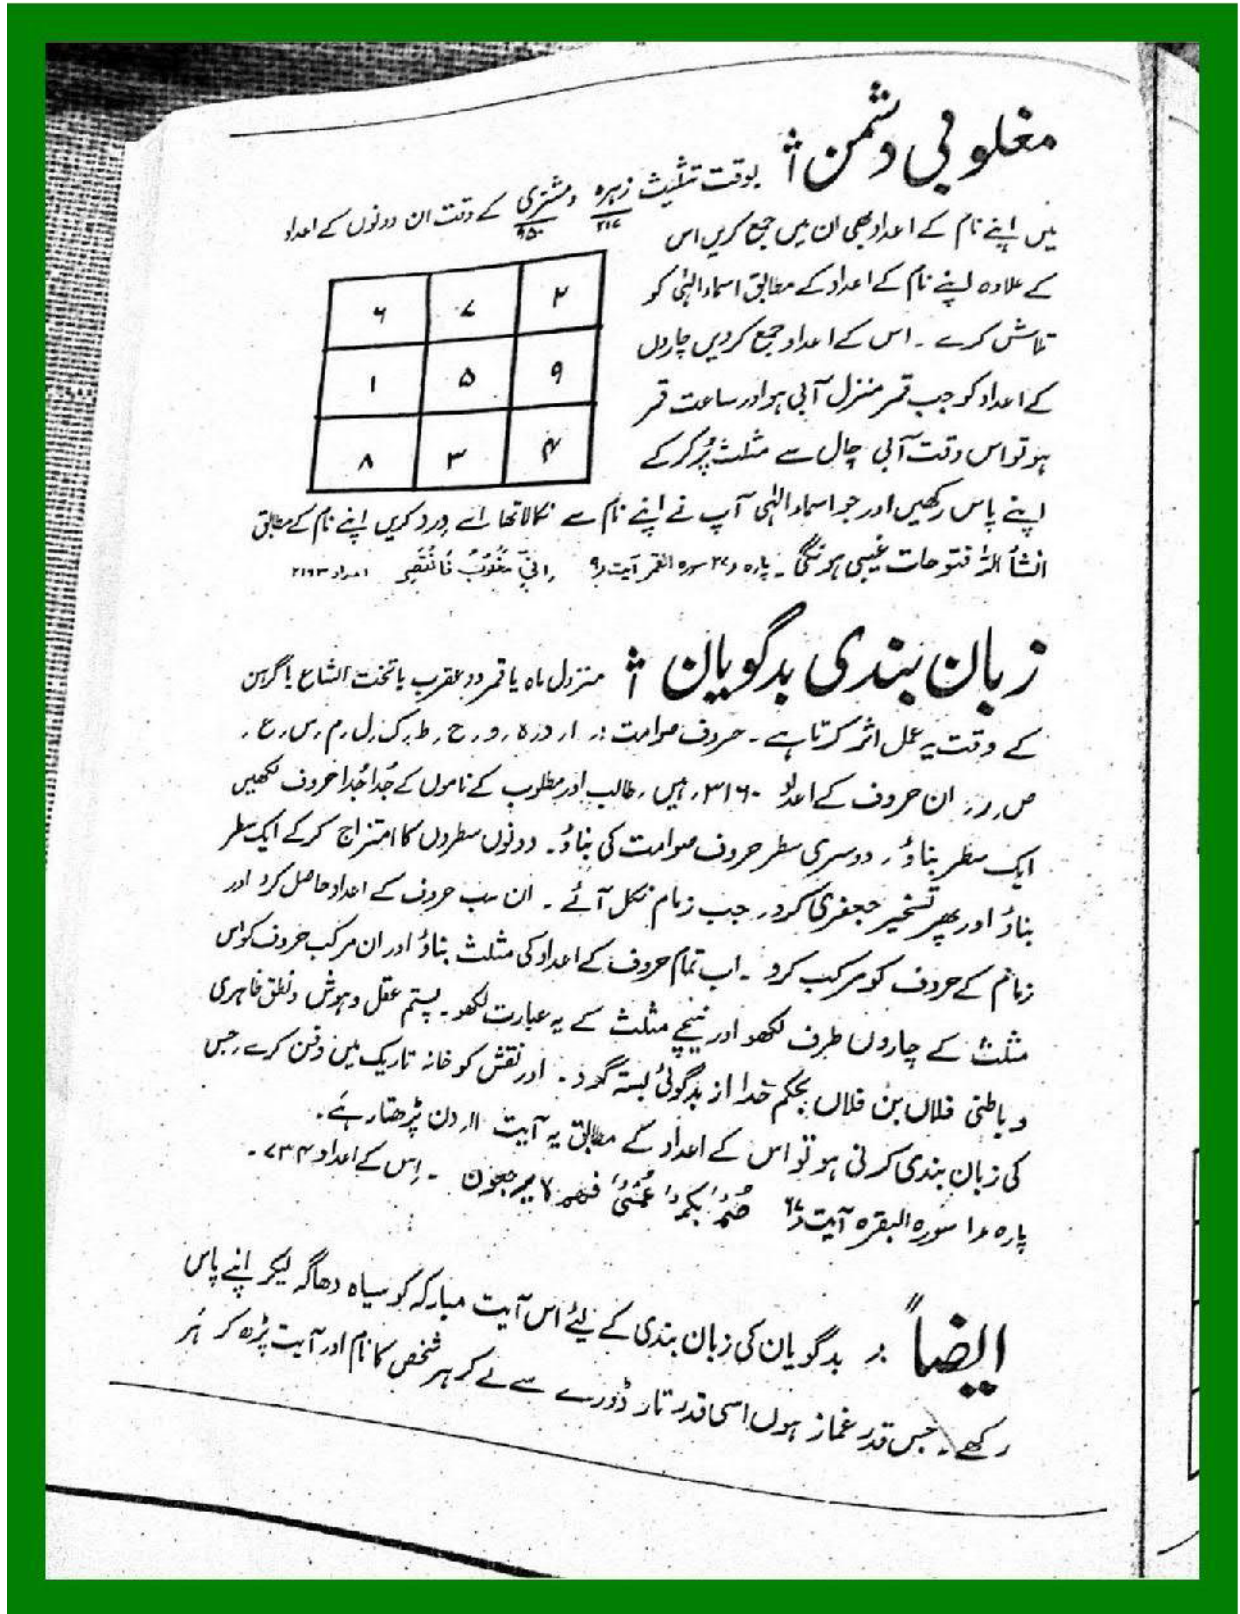 مغلوبی دشمن :۔ بوقت تثلیث زہرہ و مشتری کے وقت ان دونوں کے اعداد
۲۱۷ ۹۵۰
میں اپنے نام کے اعداد بھی ان میں جمع کریں اس
کے علاوہ اپنے نام کے اعداد کے مطابق اسماء الہٰی کو
تلاش کرے ۔ اس کے اعداد جمع کردیں چاروں
کے اعداد کو جب قمر منزل آبی ہو اور ساعت قمر
ہو تو اس وقت آبی چال سے مثلث پُر کر کے
۶ ۷ ۲
۱ ۵ ۹
۸ ۳ ۴
اپنے پاس رکھیں اور جو اسماء الہٰی آپ نے اپنے نام سے نکالا تھا اسے ورد کریں اپنے نام کے مطابق
انشأ اللہ فتوحات غیبی ہونگی ۔ پارہ ۲۷ سورہ القمر آیت ۹ اَنِّیْ مَغْلُوْبٌ فَانْتَصِرْ اعداد ۲۱۶۳
زبان بندی بدگویان :۔ منزدل ماہ یا قمر در عقرب یا تحت الشاع یا گرہن
کے وقت یہ عمل اثر کرتا ہے ۔ حروف صوامت :۔ ا ر د ر ہ ر و ر ح ر ط ر ک ر ل ر م ر س ر ع ر
ص ر ر ر ان حروف کے اعداد ۳۱۶۰ ر ہیں ر طالب اور مطلوب کے ناموں کے جُدا جُدا حروف لکھیں
ایک سطر بناؤ ر دوسری سطر حروف صوامت کی بناؤ۔ دونوں سطروں کا امتزاج کر کے ایک سطر
بناؤ اور پھر تسخیر جعفری کرو ر جب زمام نکل آئے ۔ ان سب حروف کے اعداد حاصل کرو اور
زمام کے حروف کو مرکب کرو ۔ اب تمام حروف کے اعداد کی مثلث بناؤ اور ان مرکب حروف کو اس
مثلث کے چاروں طرف لکھو اور نیچے مثلث کے یہ عبارت لکھو ۔ بستم عقل و ہوش و نطق ظاہری
و باطنی فلاں بن فلاں بحکم خدا از بدگوئی بستہ گردد ۔ اور نقش کو خانہ تاریک میں دفن کرے ر جس
کی زبان بندی کرنی ہو تو اس کے اعداد کے مطابق یہ آیت ۱۱ر دن پڑھتا رہے ۔
پارہ ۱ سورہ البقرہ آیت صُمٌّۢ بُکْمٌ عُمْیٌ فھم لا یرجعون ۔ اِس کے اعداد ۷۳۴ ۔
ایضاً :۔ بدگویان کی زبان بندی کے لئے اس آیت مبارکہ کو سیاہ دھاگہ لیکر اپنے پاس
رکھے ۔ جس قدر غماز ہوں اسی قدر تار ڈورے سے لے کر ہر شخص کا نام اور آیت پڑھ کر ہر